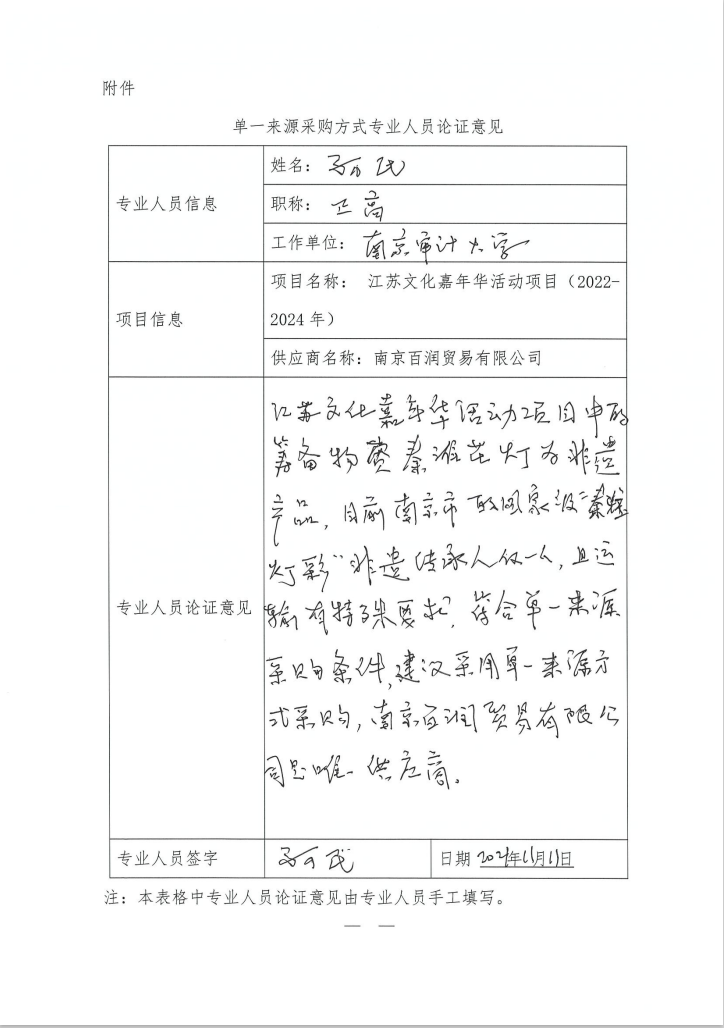 附件
单一来源采购方式专业人员论证意见
专业人员信息
姓名：
职称： 正高
工作单位： 南京审计大学
项目信息
项目名称： 江苏文化嘉年华活动项目（2022-
2024 年）
供应商名称：南京百润贸易有限公司
专业人员论证意见
江苏文化嘉年华活动项目中的
筹备物资秦淮花灯为非遗
产品，目前南京市的国家级“秦淮
灯彩”非遗传承人仅一人，且运
输有特殊要求，符合单一来源
采购条件，建议采用单一来源方
式采购，南京百润贸易有限公
司是唯一供应商。
专业人员签字
日期 年11月11日
注：本表格中专业人员论证意见由专业人员手工填写。
— —